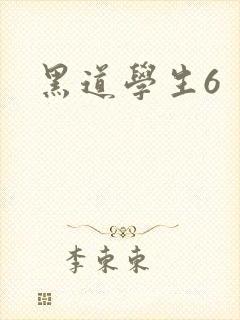 黑道學生6
李東東